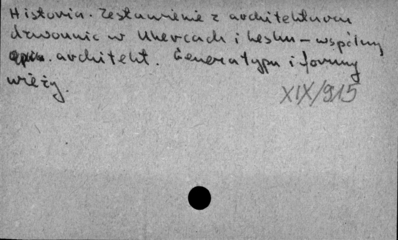 Historia. Zestawienie z architekturą
dzwonnic w Uhercach i Lesku - wspólny
architekt. Geneza typu i formy
wieży.
XIX/915